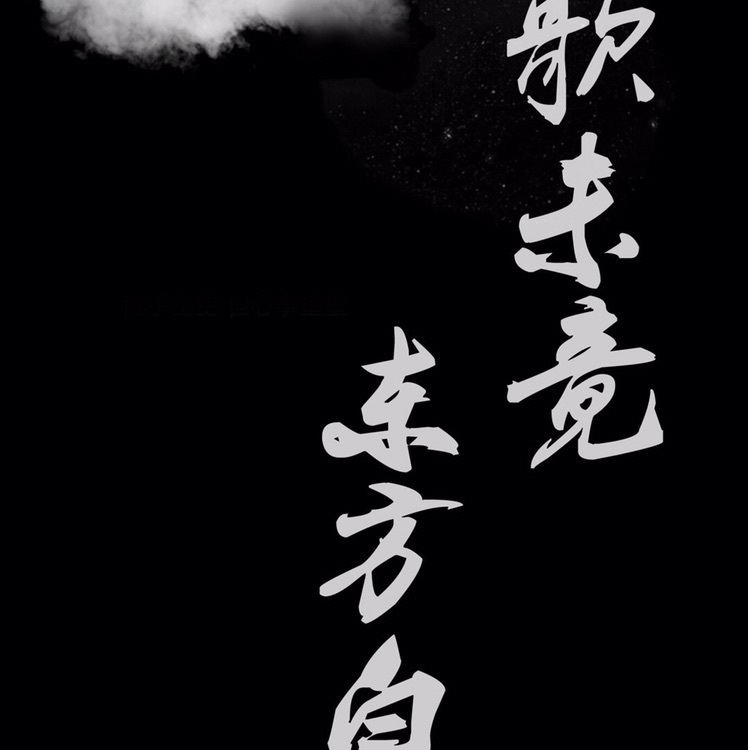 歌未竟
东方白